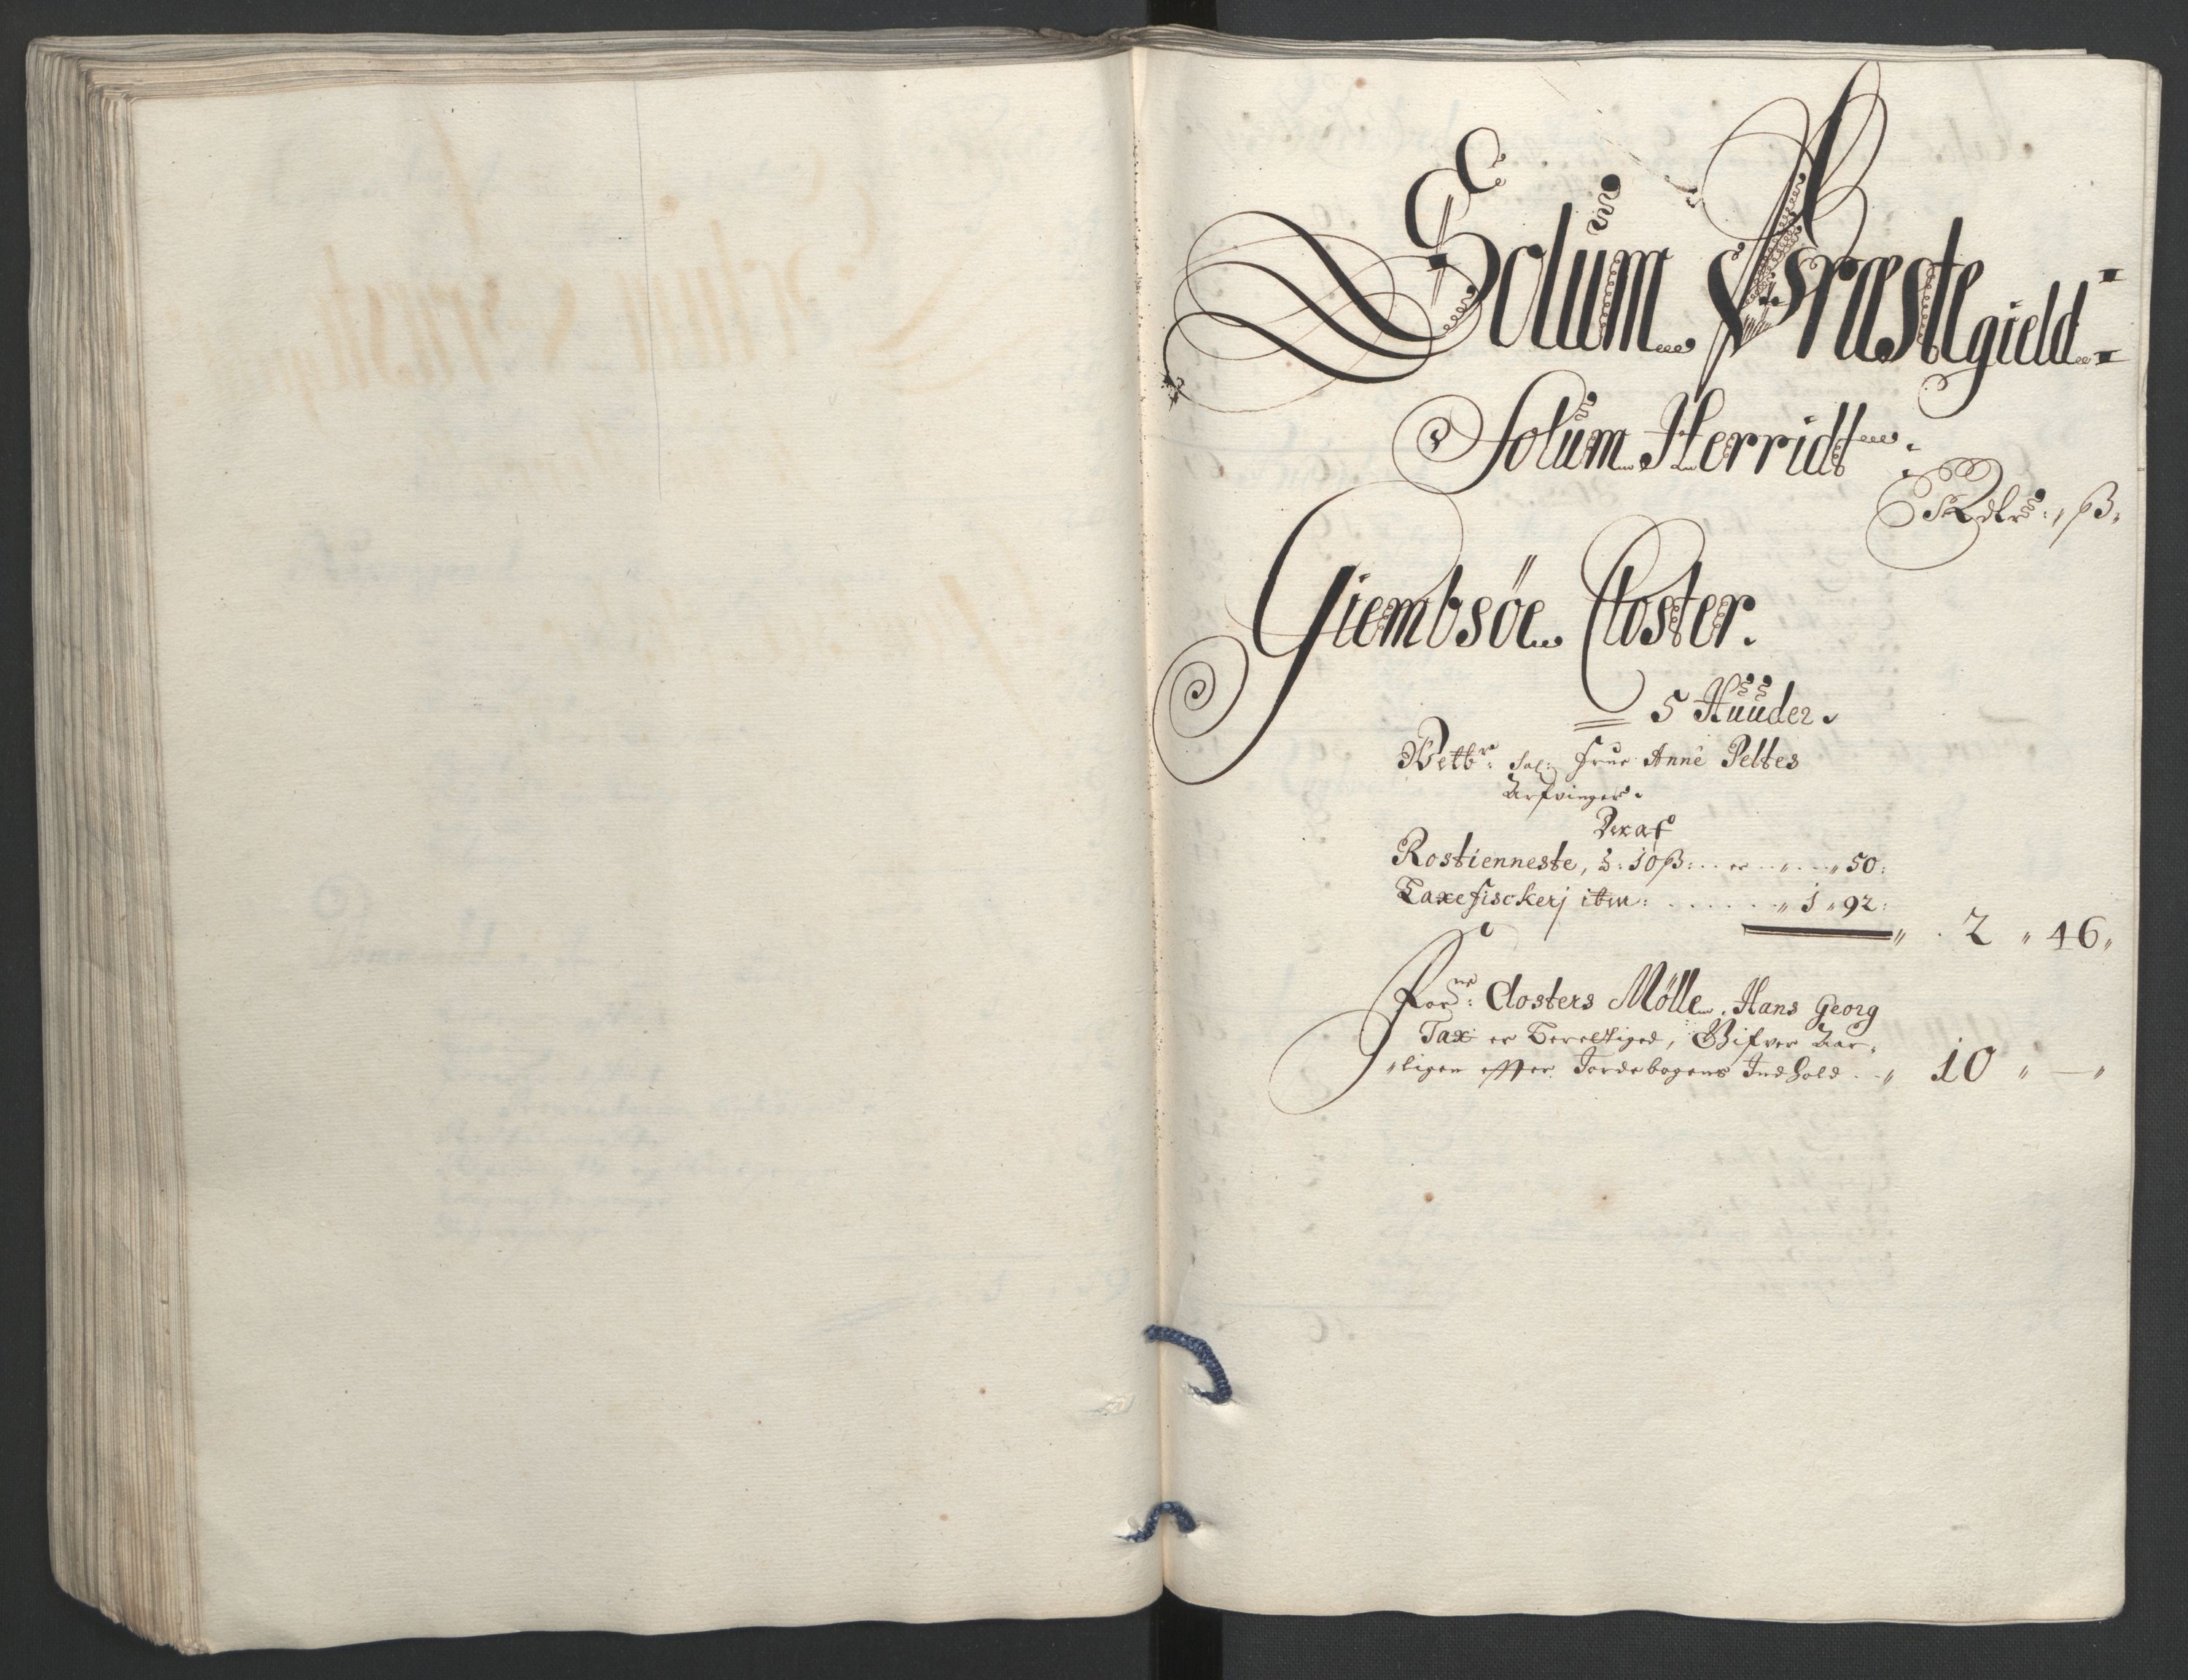 Solum Præstegield
Solum Herridt
Rdlr: ß
Giembsöe Closter.
5 Huuder.
Betbr: Sal: Frue Anne Peltes
Arfvinger.
Deraf
Rostienneste, 1: 10 ß: .. er .. „ .. „ 50:
Laxefisckerj item: . . . . . . „ 1 „ 92:
„ . 2 „ 46 „
Forne: Closters Mølle, Hans Georg
Tax er Berettiged, Gifver Aar-
„ligen effter Jordebogens Indhold . . „ 10 „ — „